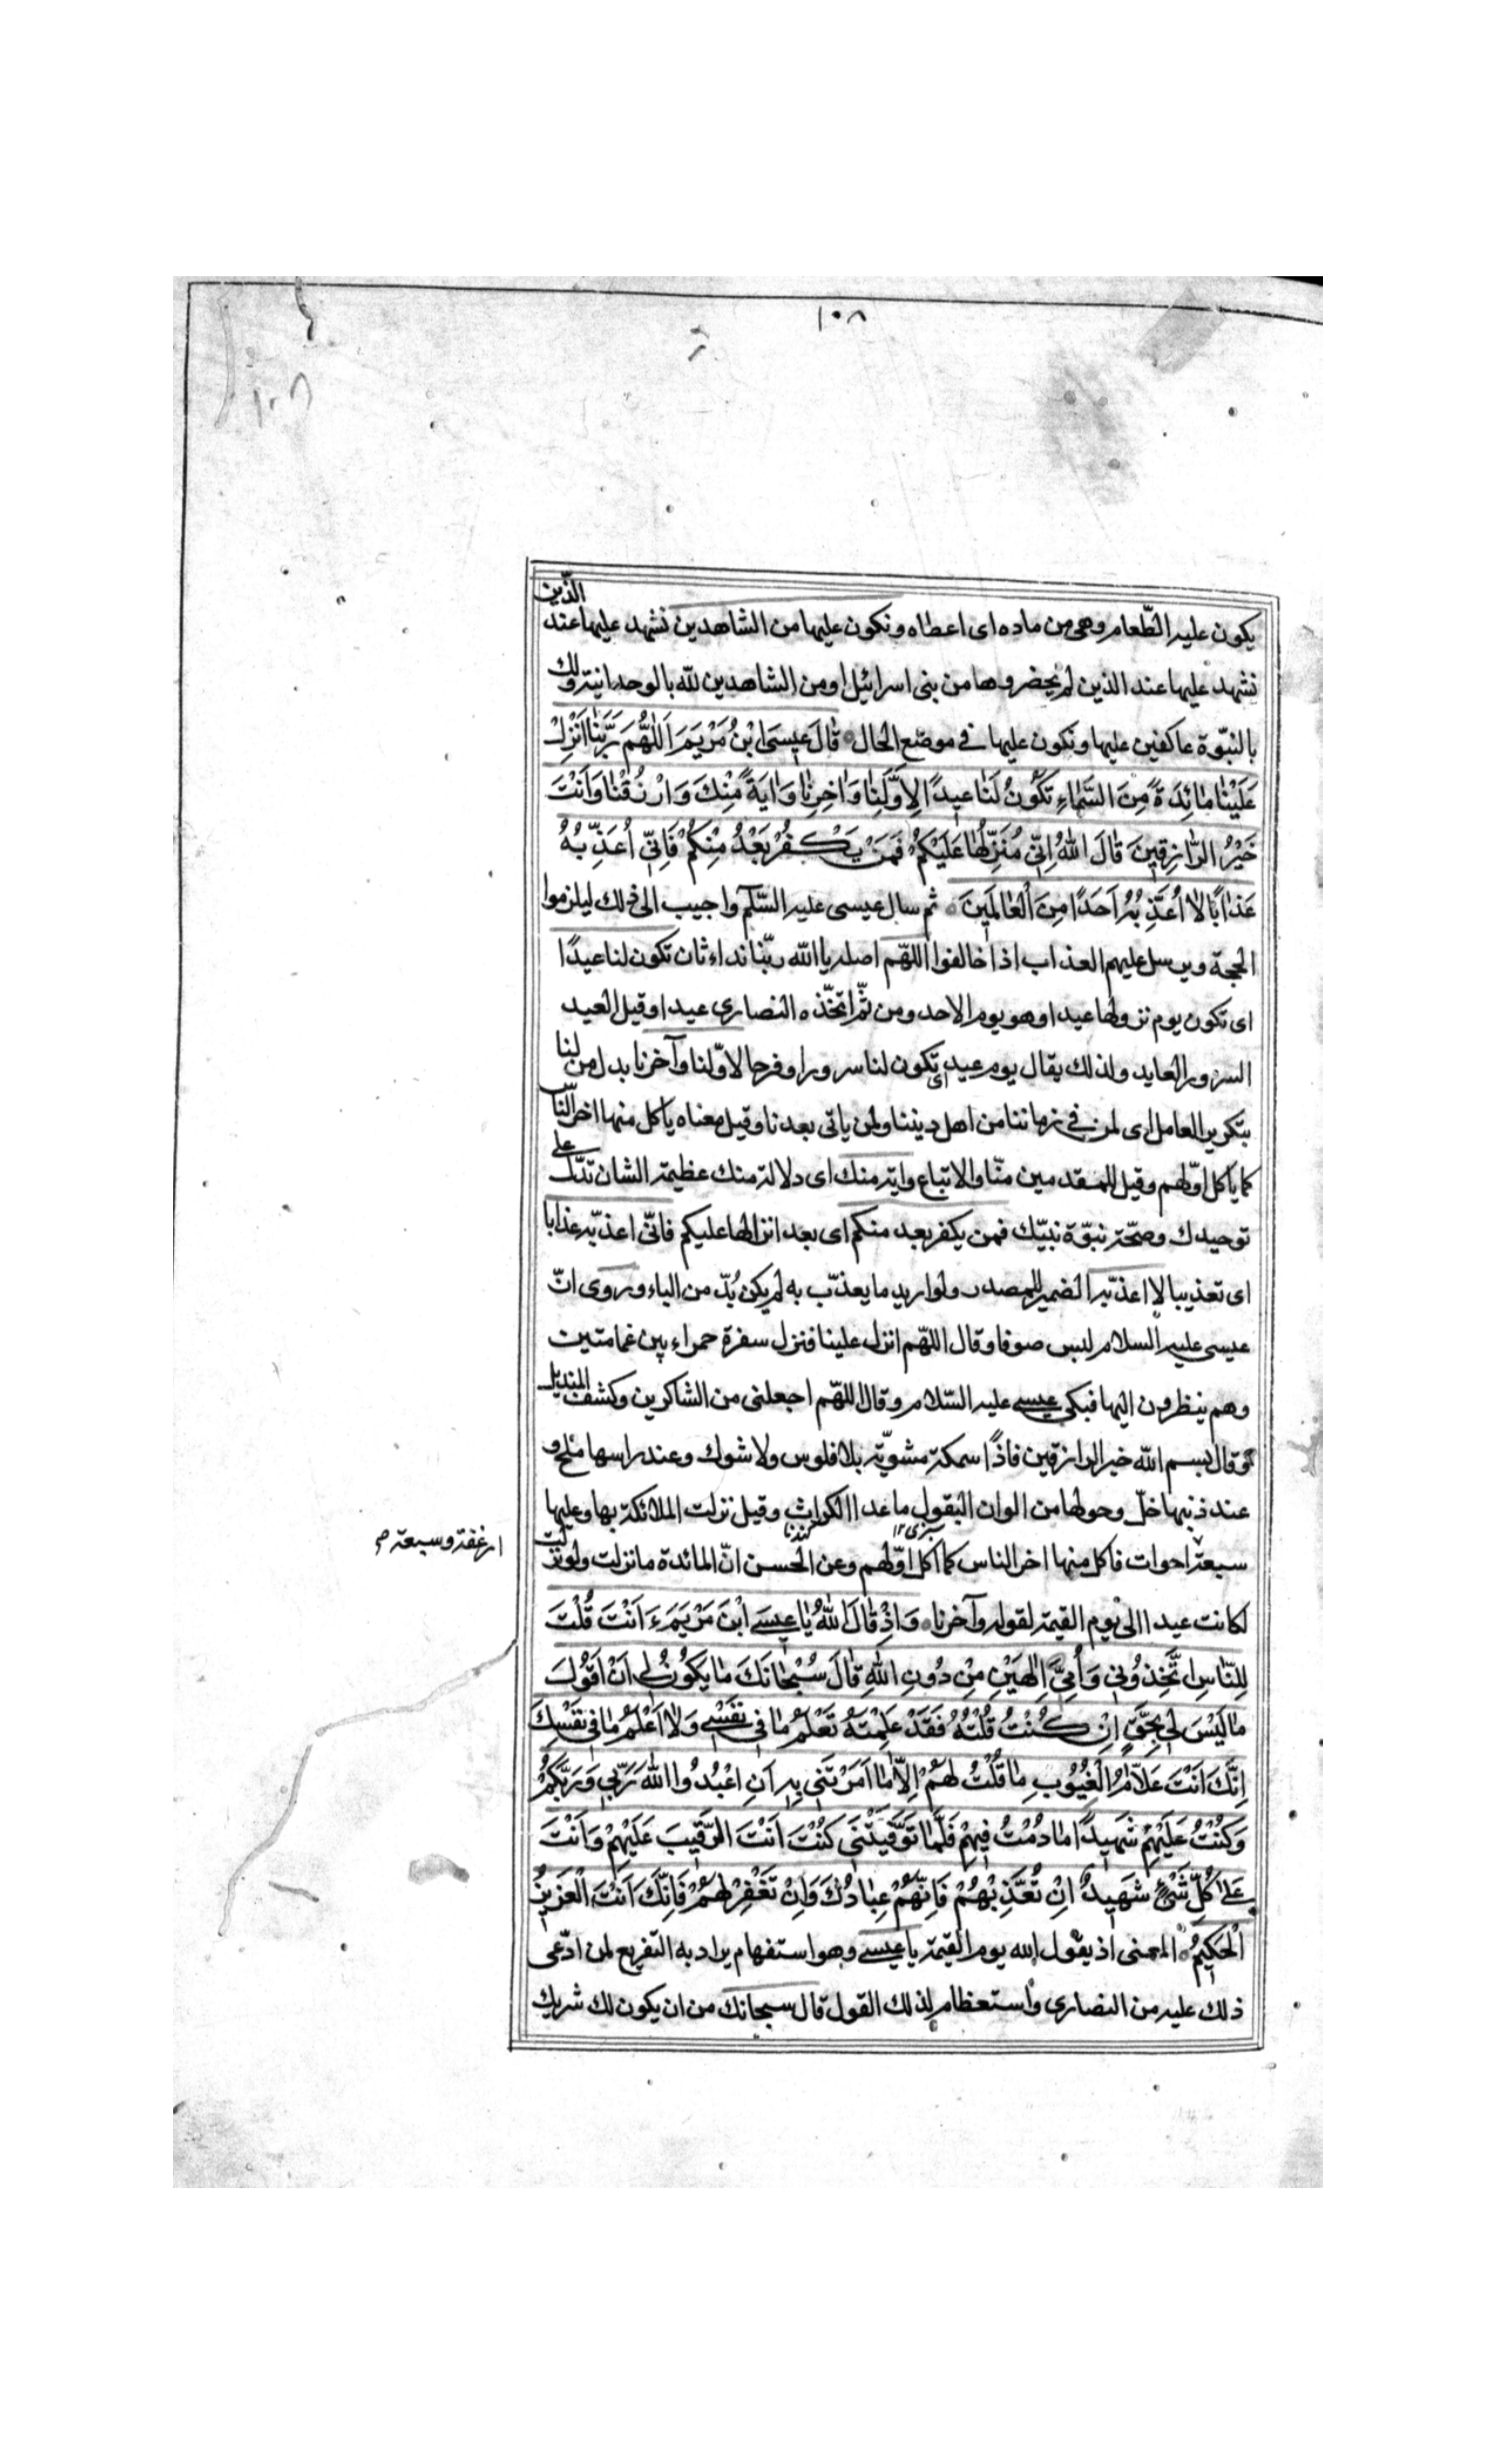 ١٠٨
١٠٨
يكون عليه الطّعام وهى من ماده اى اعطاه ونكون عليها من الشاهدين نشهد عليها عند الذّين
نشهد عليها عند الذين لم يحضروها من بنى اسرائيل او من الشاهدين لله بالوحدانية ولك
بالنبّوة عاكفين عليها ونكون عليها فى موضع الحال قَالَ عِيسَى ابْنُ مَرْيَمَ اَللّٰهُمَّ رَبَّنَا اَنْزِلْ
عَلَيْنَا مَائِدَةً مِنَ السَّمَاءِ تَكُونُ لَنَا عِيدًا لِاَوَّلِنَا وَاٰخِرِنَا وَاٰيَةً مِنْكَ وَارْزُقْنَا وَاَنْتَ
خَيْرُ الرَّازِقِينَ قَالَ اللهُ اِنّىِ مُنَزِّلُهَا عَلَيْكُمْ فَمَنْ يَكْفُرْ بَعْدُ مِنْكُمْ فَاِنّىِ اُعَذِّبُهُ
عَذَابًا لَا اُعَذِّبُهُ اَحَدًا مِنَ الْعَالَمِينَ ثم سال عيسى عليه السّلم واجيب الى ذلك ليلزموا
الحجة ويرسل عليهم العذاب اذا خالفوا اللهّم اصله يا الله ربّنا نداء ثان تكون لنا عيدًا
اى تكون يوم نزولها عيدا وهو يوم الاحد ومن ثمّ اتخّذه النصارى عيدا وقيل العيد
السرور العايد ولذلك يقال يوم عيد اى تكون لنا سرورا وفرحا لاوّلنا وآخرنا بدل من لنا
بتكرير العامل اى لمن فى زماننا من اهل ديننا ولمن ياتى بعدنا وقيل معناه ياكل منها اخر النّاس
كما ياكل اوّلهم وقيل للمقدمين منّا والاتباع واية منك اى دلالة منك عظيمة الشان تدّل على
توحيدك وصحّة نبوّة نبيّك فمن يكفر بعد منكم اى بعد انزالها عليكم فانّى اعذبّه عذابا
اى تعذيبا لا اعذبّه الضمير للمصدر ولو اريد ما يعذّب به لم يكن بُدّ من الباء وروى انّ
عيسى عليه السلام لبس صوفا وقال اللهّم انزل علينا فنزل سفرة حمراء بين غمامتين
وهم ينظرون اليها فبكى عيسى عليه السّلام وقال اللهّم اجعلنى من الشاكرين وكشف المنديل
وقال بسم الله خير الرازقين فاذًا سمكة مشويّة بلا فلوس ولا شوك وعند راسها ملح و
عند ذنبها خلّ وحولها من الوان البقول ما عدا الكراث وقيل نزلت الملائكة بها وعليها
ارغفة وسبعة م
سبعة احوات فاكل منها اخر الناس كما اكل اوّلهم وعن الحسن انّ المائدة ما نزلت ولو نزلت
لكانت عيدا الى يوم القيمة لقوله وآخرنا وَاِذْ قَالَ اللهُ يَا عِيسَى ابْنَ مَرْيَمَ ءَاَنْتَ قُلْتَ
لِلنَّاسِ اتَّخِذُونِى وَاُمِّىَ اِلٰهَيْنِ مِنْ دُونِ اللهِ قَالَ سُبْحَانَكَ مَا يَكُونُ لِى اَنْ اَقُولَ
مَا لَيْسَ لِى بِحَقٍّ اِنْ كُنْتُ قُلْتُهُ فَقَدْ عَلِمْتَهُ تَعْلَمُ مَا فِى نَفْسِى وَلَا اَعْلَمُ مَا فِى نَفْسِكَ
اِنَّكَ اَنْتَ عَلَّامُ الْغُيُوبِ مَا قُلْتُ لَهُمْ اِلَّا مَا اَمَرْتَنِى بِهِ اَنِ اعْبُدُوا اللهَ رَبِّى وَرَبَّكُمْ
وَكُنْتُ عَلَيْهِمْ شَهِيدًا مَا دُمْتُ فِيهِمْ فَلَمَّا تَوَفَّيْتَنِى كُنْتَ اَنْتَ الرَّقِيبَ عَلَيْهِمْ وَاَنْتَ
عَلَى كُلِّ شَىْءٍ شَهِيدٌ اِنْ تُعَذِّبْهُمْ فَاِنَّهُمْ عِبَادُكَ وَاِنْ تَغْفِرْ لَهُمْ فَاِنَّكَ اَنْتَ الْعَزِيزُ
الْحَكِيمُ المعنى اذ يقول الله يوم القيمة يا عيسى وهو استفهام يراد به التقريع لمن ادّعى
ذلك عليه من النصارى واستعظام لذلك القول قال سبحانك من ان يكون لك شريك